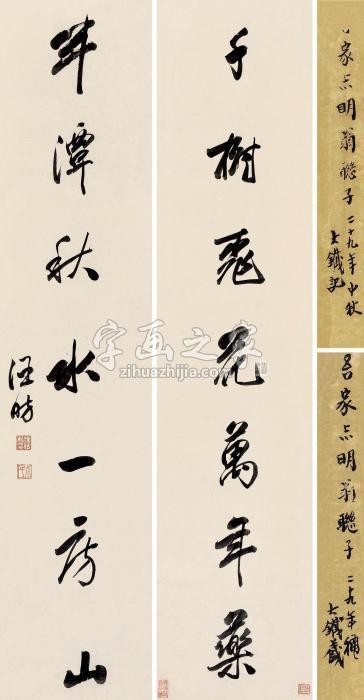 千樹飛花萬年藥
半潭秋水一房山
汪昉
吾家尗明翁聯子 二十九年中秋
大鐵記
吾家尗明翁聯子 二十九年穐
大鐵藏
字画之家
zihuazhijia.com